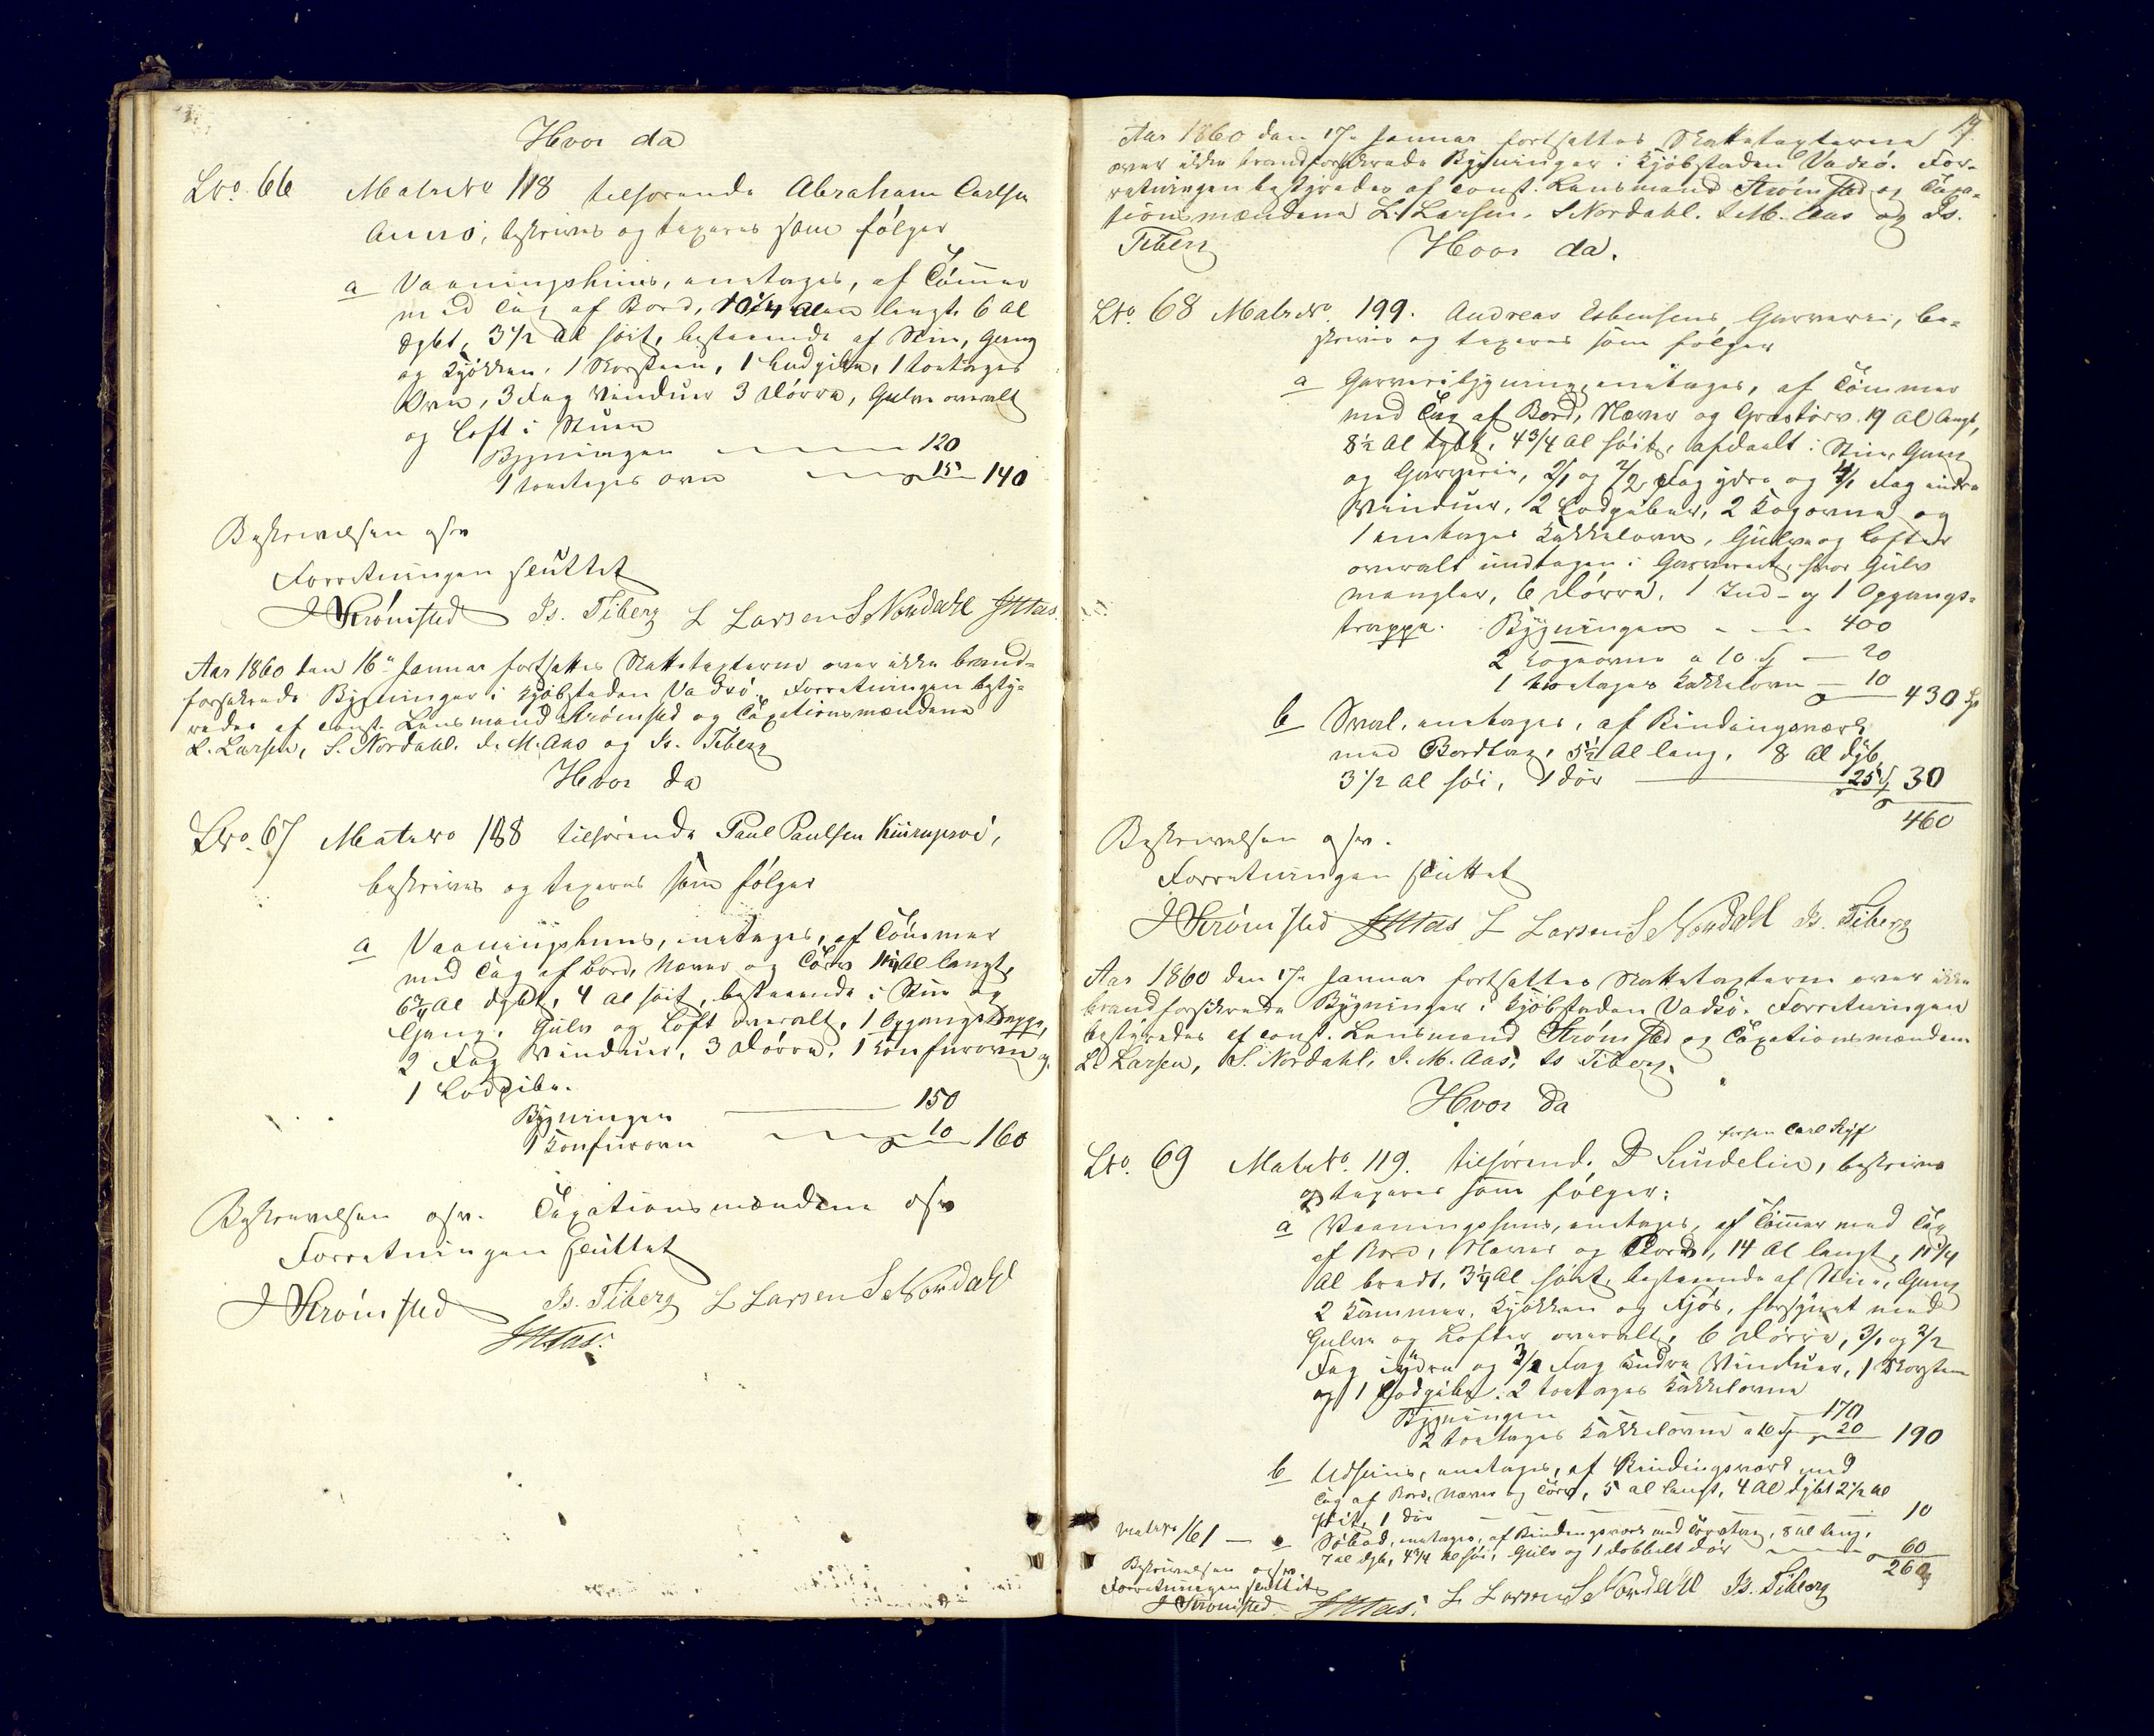 Hvor da
Lno. 66 Matr No 118 tilhørende Abraham Carlsen
beskrives og taxeres som følger
a Vaaningshuus, eenetages, af Tømmer
med Tag af Bord, 10 1/4 Alen langt, 6 Al
dybt, 3 1/2 Al høit, bestaaende af Stue, Gang
og Kjøkken, 1 Skorsteen, 1 Lodpibe, 1 toetages
Ovn, 3 Fag Vinduer 3 Dørre, Gulve overalt
og Loft i Stuen
Bygningen 120
1 toeetages Ovn 15 140
Beskrivelsen osv
Forretningen sluttet
J Strømsted Is. Tiberg L Larsen S Nordahl JMAas.
Aar 1860 den 16de Januar fortsattes Skattetaxterne over ikke brand-
forsikrede Bygninger i Kjøbstaden Vadsø. Forretningen besty-
redes af const. Lensmand Strømsted og Taxationsmændene
L. Larsen, S. Nordahl. J. M. Aas og Is. Tiberg
Hvor da
Lno. 67 Matr No 188 tilhørende Paul Paulsen
beskrives og taxeres som følger
a Vaaningshuus, eenetages, af Tømmer
med Tag af Bord, Næver og Tørv Al langt,
Al dybt, 4 Al høit, bestaaende i Stue og
Gang. Gulv og Loft overalt, 1 Opgangstrappe,
2 Fag Vinduer, 3 Dørre, 1 Komfurovn og
1 Lodpibe.
Bygningen 150
1 Komfurovn 10 160
Beskrivelsen osv. Taxationsmændene osv
Forretningen sluttet
J Strømsted Is. Tiberg L Larsen S Nordahl
JMAas.
17
Aar 1860 den 17de Januar fortsattes Skattetaxterne
over ikke brandforsikrede Bygninger i Kjøbstaden Vadsø. For-
retningen bestyredes af const. Lensmand Strømsted og Taxa-
tionsmændene L. Larsen, S Nordahl. J. M. Aas og Is.
Tiberg Hvor da.
Lno. 68 Matr No. 199. Andreas Esbensens Garveri, be-
skrives og taxeres som følger
a Garveribygning, eenetages, af Tømmer
med Tag af Bord, Næver og Græstørv. 19 Al langt,
8 1/2 Al dybt, 4 3/4 Al høit, afdeelt i Stue, Gang
og Garverie, 2/1 og 2/2 Fag ydre og 4/1 Fag indre
Vinduer, 2 Lodpiber, 2 Kogovne og
1 eenetages Kakkelovn, Gulve og Lofter
overalt undtagen i Garveriet, hvor Gulv
mangler, 6 Dørre, 1 Ind- og 1 Opgangs-
trappe. Bygningen 400
2 Kogeovne a 10 20
1 eenetages Kakkelovn 10 430
b Sval, eenetages, af Bindingsværk
med Bordtag, 5 1/2 Al lang, 8 Al dyb,
3 1/2 Al høi, 1 Dør 25 30
460
Beskrivelsen osv.
Forretningen sluttet
J Strømsted JMAas L Larsen S Nordahl Is. Tiberg
Aar 1860 den 17de Januar fortsattes Skattetaxterne over ikke
brandforsikrede Bygninger i Kjøbstaden Vadsø. Forretningen
bestyredes af const. Lensmand Strømsted og Taxationsmændene
L Larsen, S. Nordahl, J. M. Aas, Is Tiberg.
Hvor da
Carl
Lno. 69 Matr No. 119. tilhørende Sundelin, beskrives
og taxeres som følger:
a Vaaningshuus, eenetages, af Tømmer med Tag
af Bord, Næver og Tørv, 14 Al langt, 11 1/4
Al bredt, 3 1/4 Al høit, bestaaende af Stue, Gang
2 Kammer, Kjøkken og Fjøs, forsynet med
Gulve og Lofter overalt, 6 Dørre, 3/1 og 2/2
Fag ydre og Fag indre Vinduer, 1 Skorsteen
og 1 Lodpibe. 2 toetages Kakkelovne
Bygningen 170
2 toetages Kakkelovne a 10 20 190
b Udhuus, eenetages, af Bindingsværk med
Tag af Bord, Næver og Tørv, 5 Al langt, 4 Al dybt 2 1/2 Al
høit, 1 Dør 10
Matr No 161 c Søbod, eenetages, af Bindingsværk med Tørvtag, 8 Al lang,
7 Al dyb, 4 3/4 Al høi, Gulv og 1 dobbelt Dør 60
260
Beskrivelsen osv
Forretningen sluttet
J Strømsted JMAas. L Larsen S Nordahl Is. Tiberg